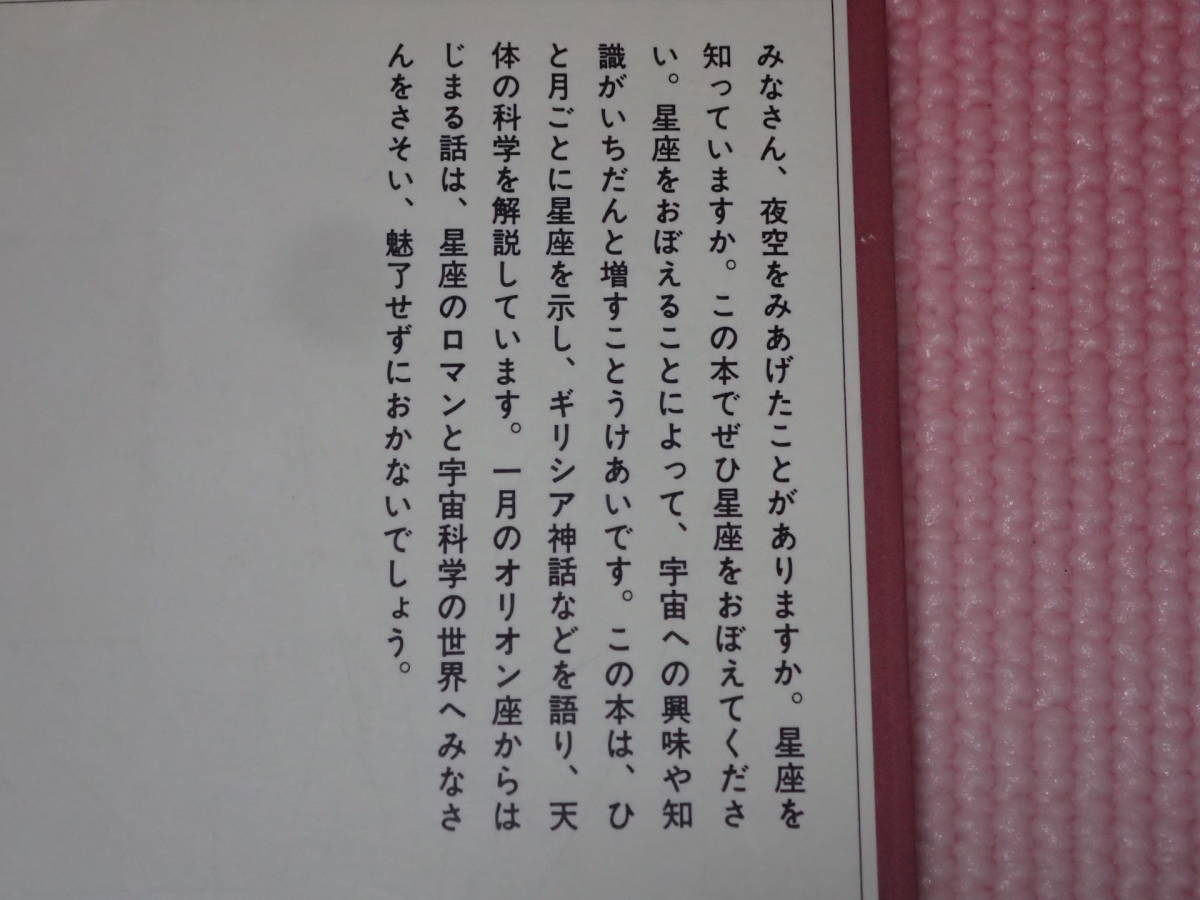 みなさん、夜空をみあげたことがありますか。星座を
知っていますか。この本でぜひ星座をおぼえてくださ
い。星座をおぼえることによって、宇宙への興味や知
識がいちだんと増すことうけあいです。この本は、ひ
と月ごとに星座を示し、ギリシア神話などを語り、天
体の科学を解説しています。一月のオリオン座からは
じまる話は、星座のロマンと宇宙科学の世界へみなさ
んをさそい、魅了せずにおかないでしょう。